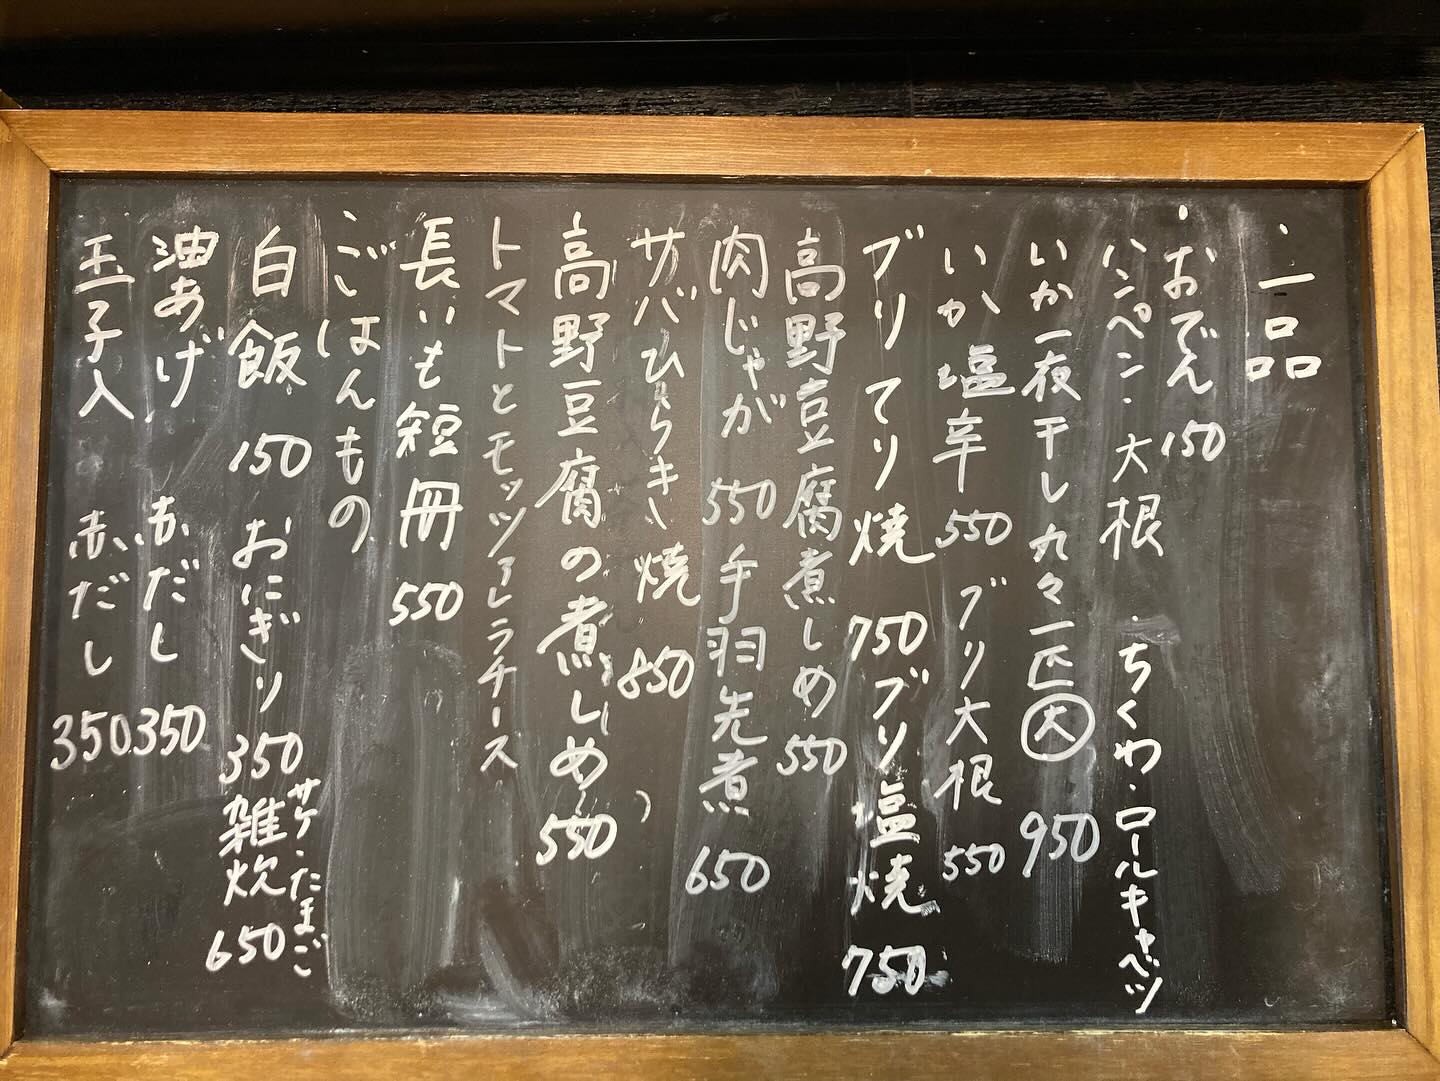 ・一品
・おでん 150
ハンペン・大根・ちくわ・ロールキャベツ
いか一夜干し丸々一匹大 950
いか塩辛 550 ブリ大根 550
ブリてり焼 750 ブリ塩焼 750
高野豆腐煮しめ 550
肉じゃが 550 手羽先煮 650
サバひらき焼 850
高野豆腐の煮しめ 550
トマトとモッツァレラチーズ
長いも短冊 550
・ごはんもの
白飯 150 おにぎり 350 雑炊 650 サケ・たまご
油あげ 赤だし 350
玉子入 赤だし 350